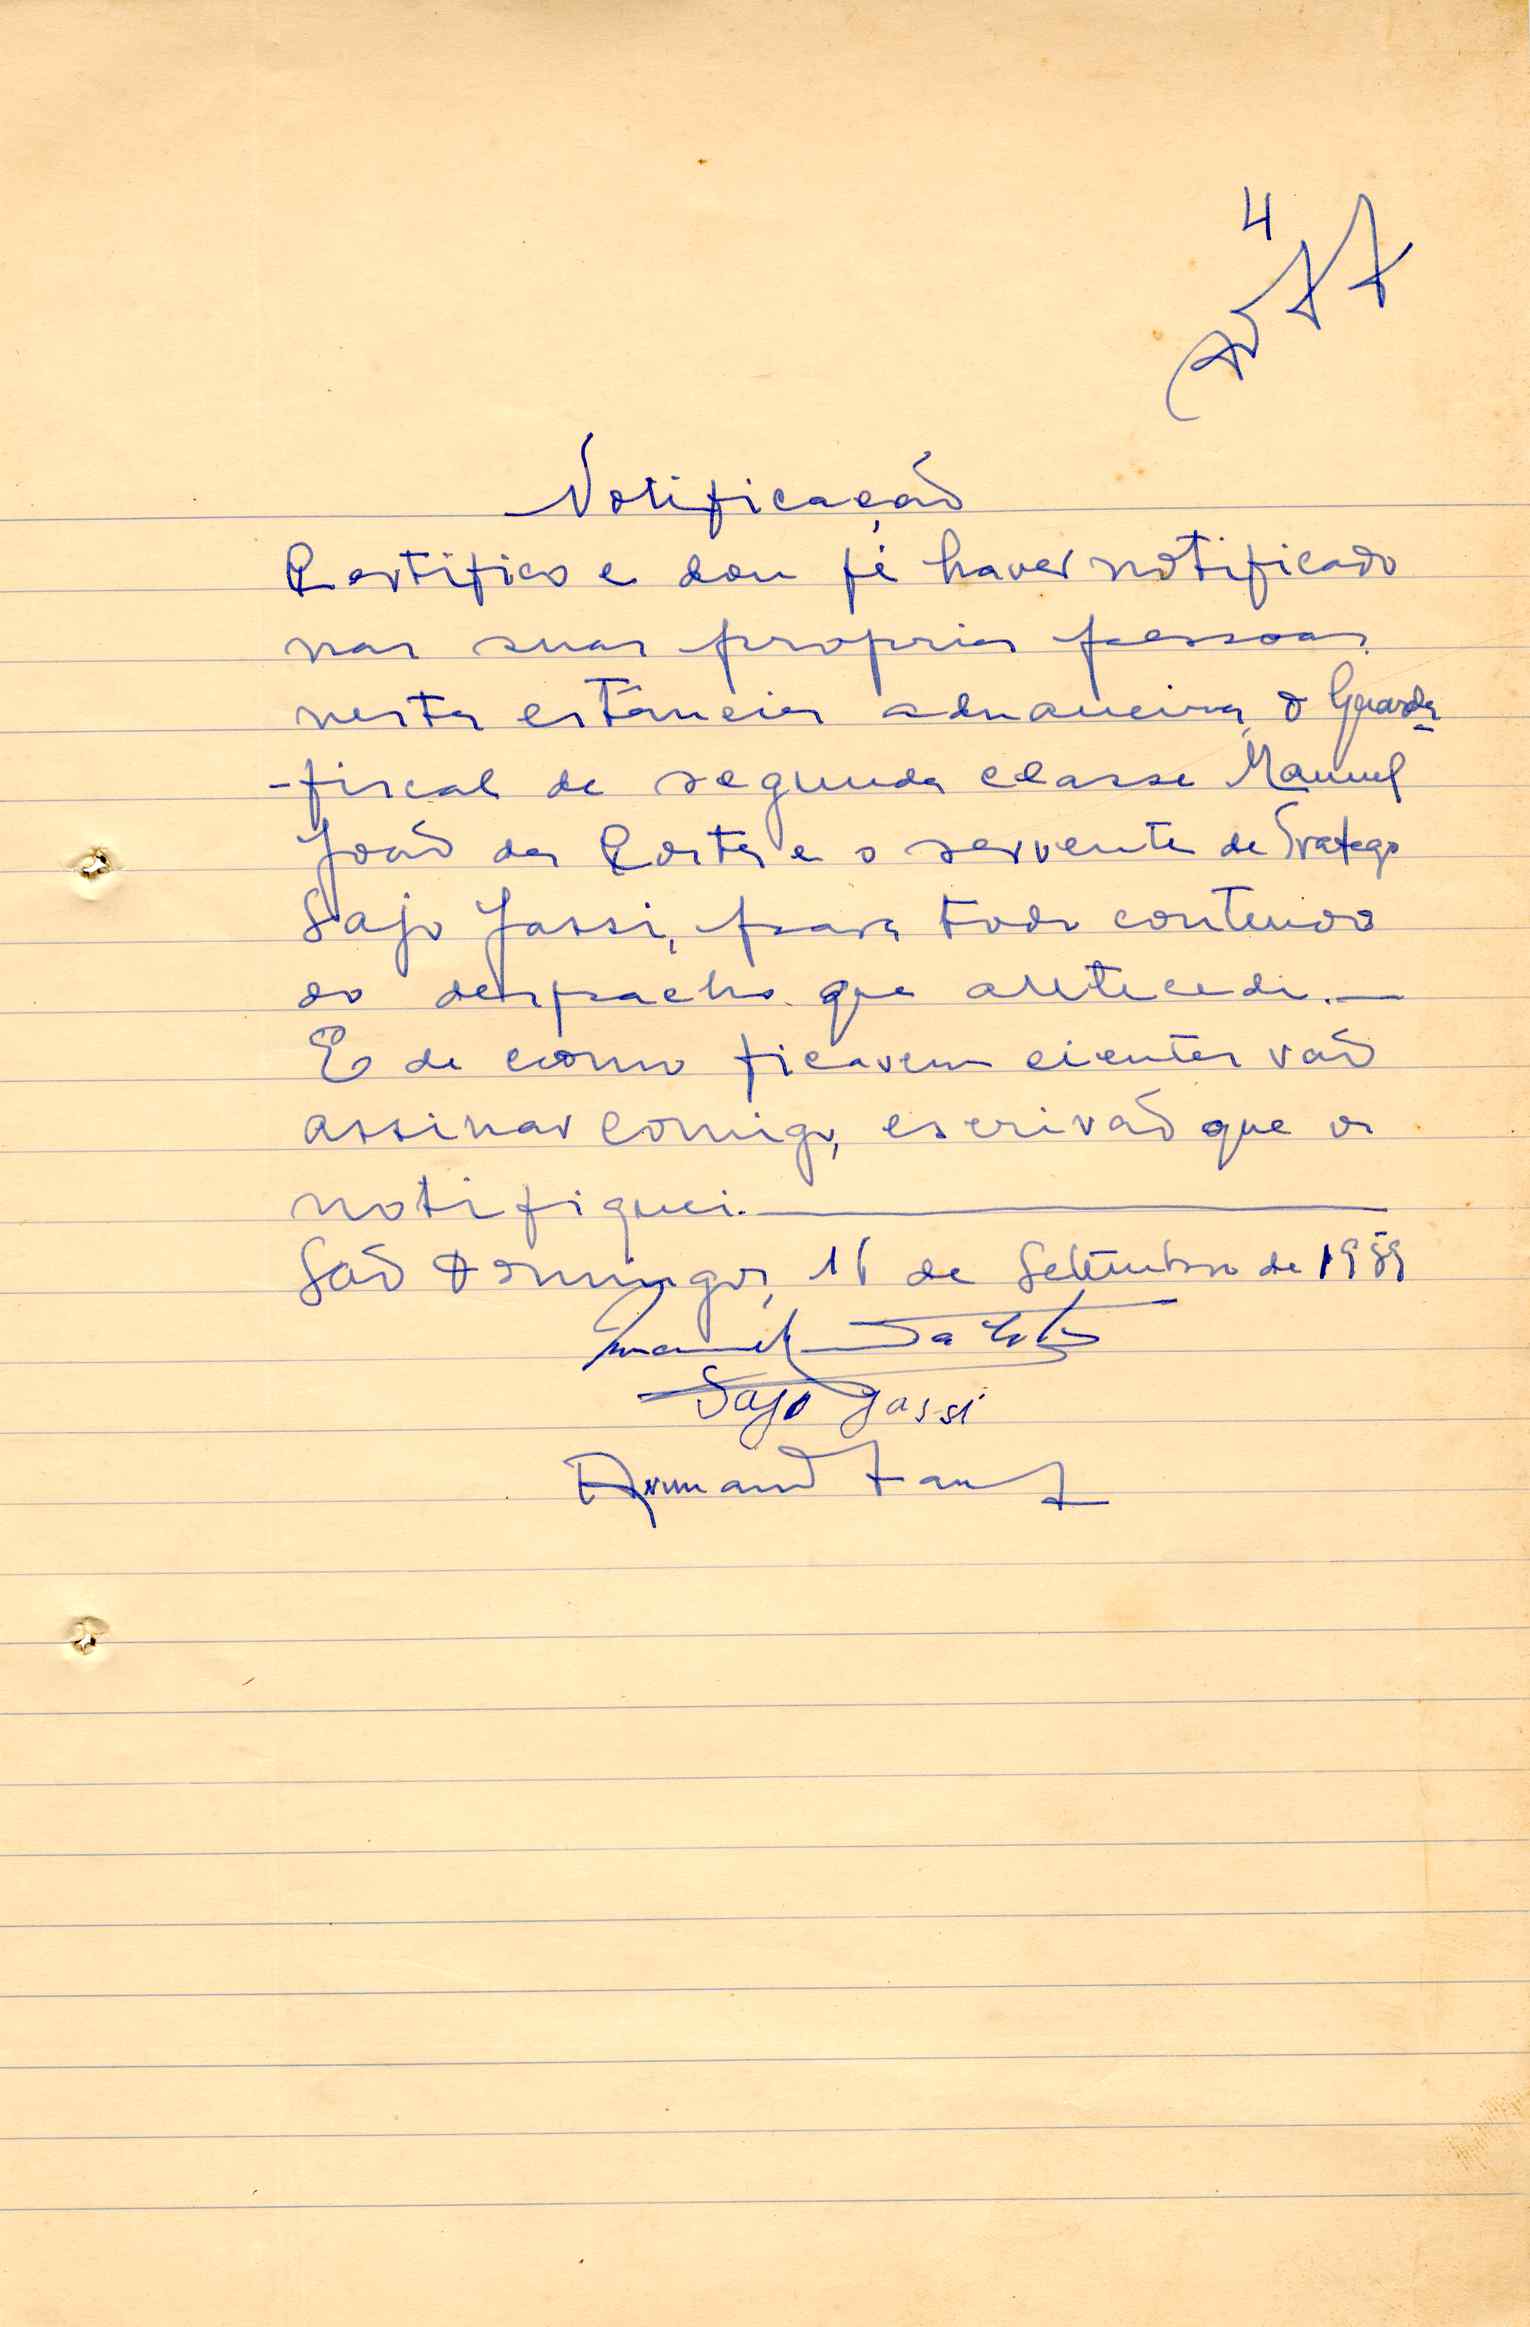 4
Notificação
Certifico e dou fé haver notificado
nas suas proprias pessoas
nesta estância aduaneira, o Guarda
-fiscal de segunda classe Manuel
João da Costa e o servente de Trafego
Sajo Jassi, para todo contendo
do despacho que antecede. —
E de como ficavam cientes vão
assinar comigo, escrivão que os
notifiquei. —
São Domingos, 16 de Setembro de 1959
Manuel da Costa
Sajo Jassi
Armando